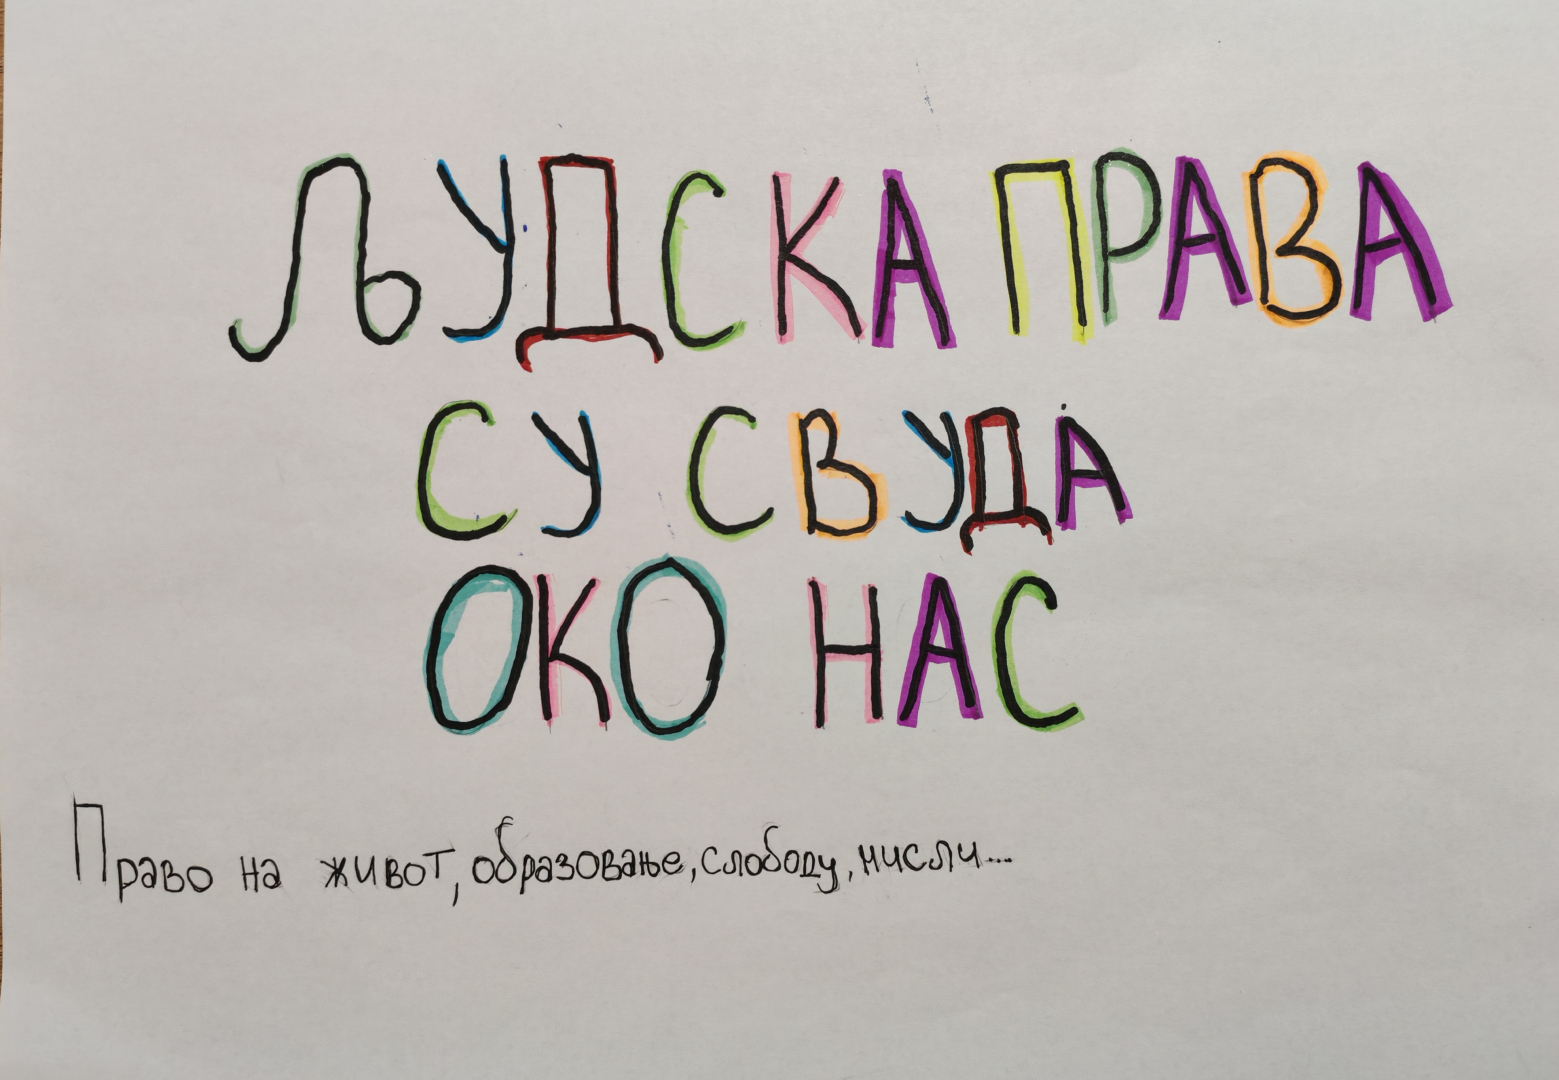 ЉУДСКА ПРАВА
СУ СВУДА
ОКО НАС
Право на живот, образовање, слободу, мисли...